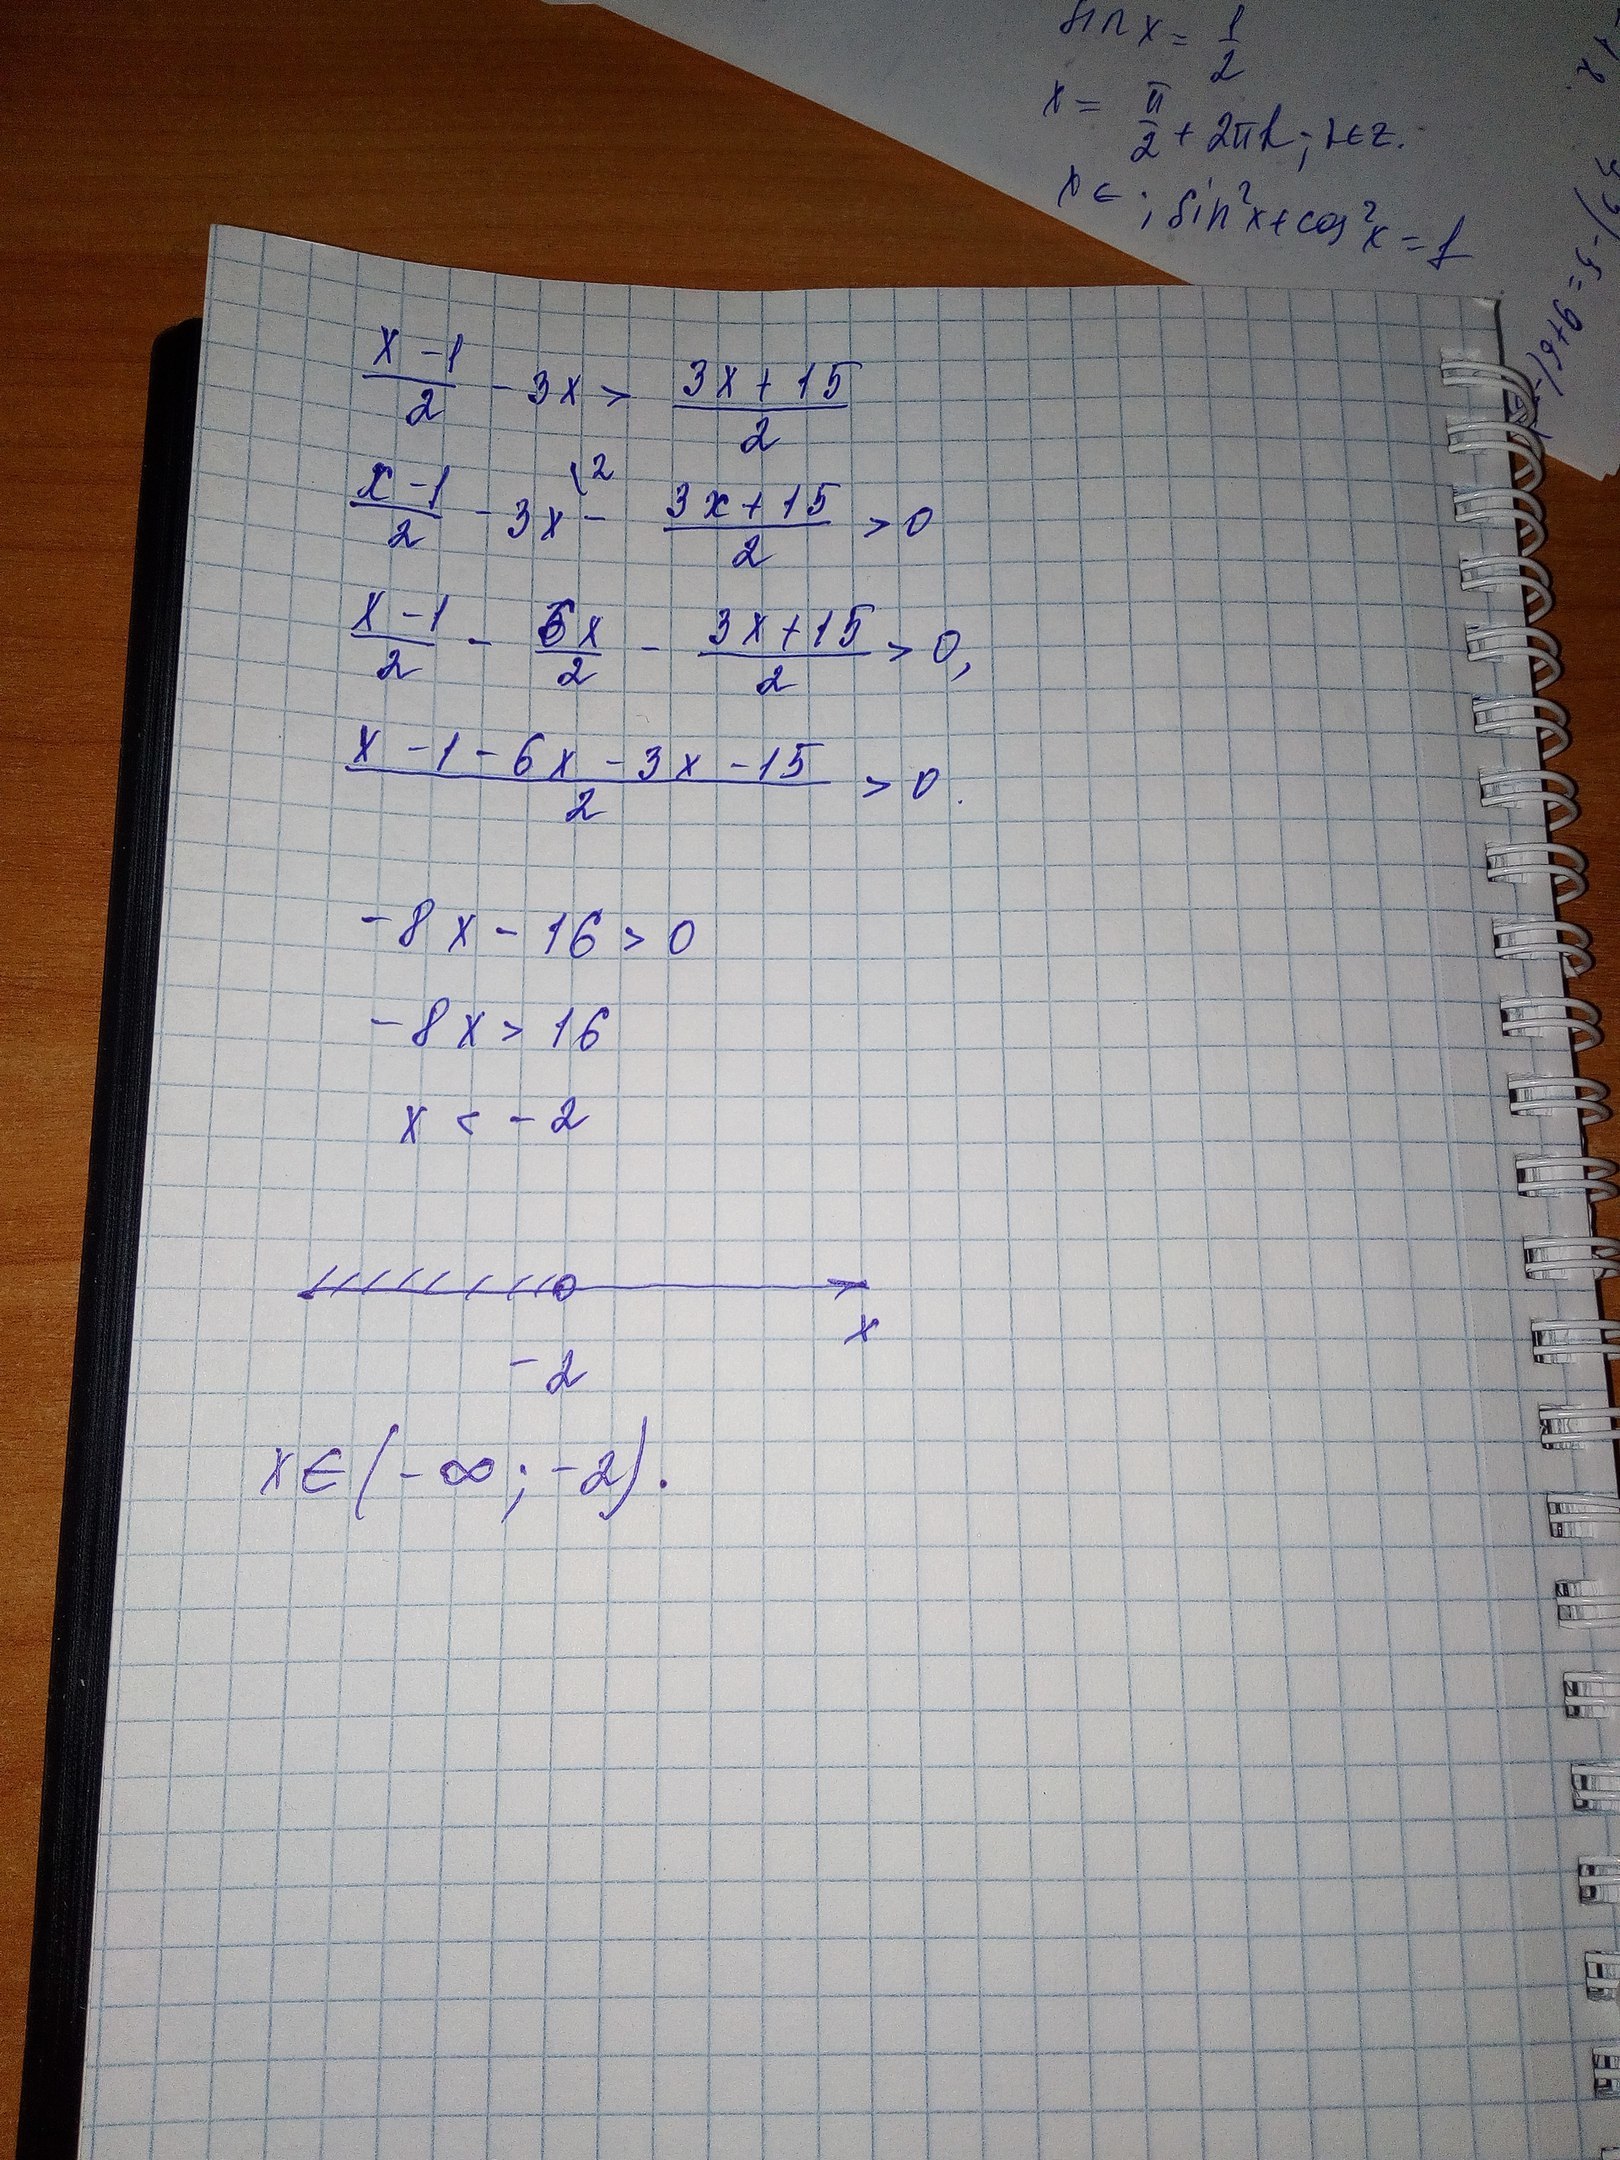 sin x = 1/2
x = π/2 + 2πk; k∈z.
x ∈ ; sin²x + cos²x = 1
(x-1)/2 - 3x > (3x+15)/2
(x-1)/2 - 3x\2 - (3x+15)/2 > 0
(x-1)/2 - 6x/2 - (3x+15)/2 > 0,
(x-1-6x-3x-15)/2 > 0.
-8x - 16 > 0
-8x > 16
x < -2
x
-2
x∈(-∞; -2).